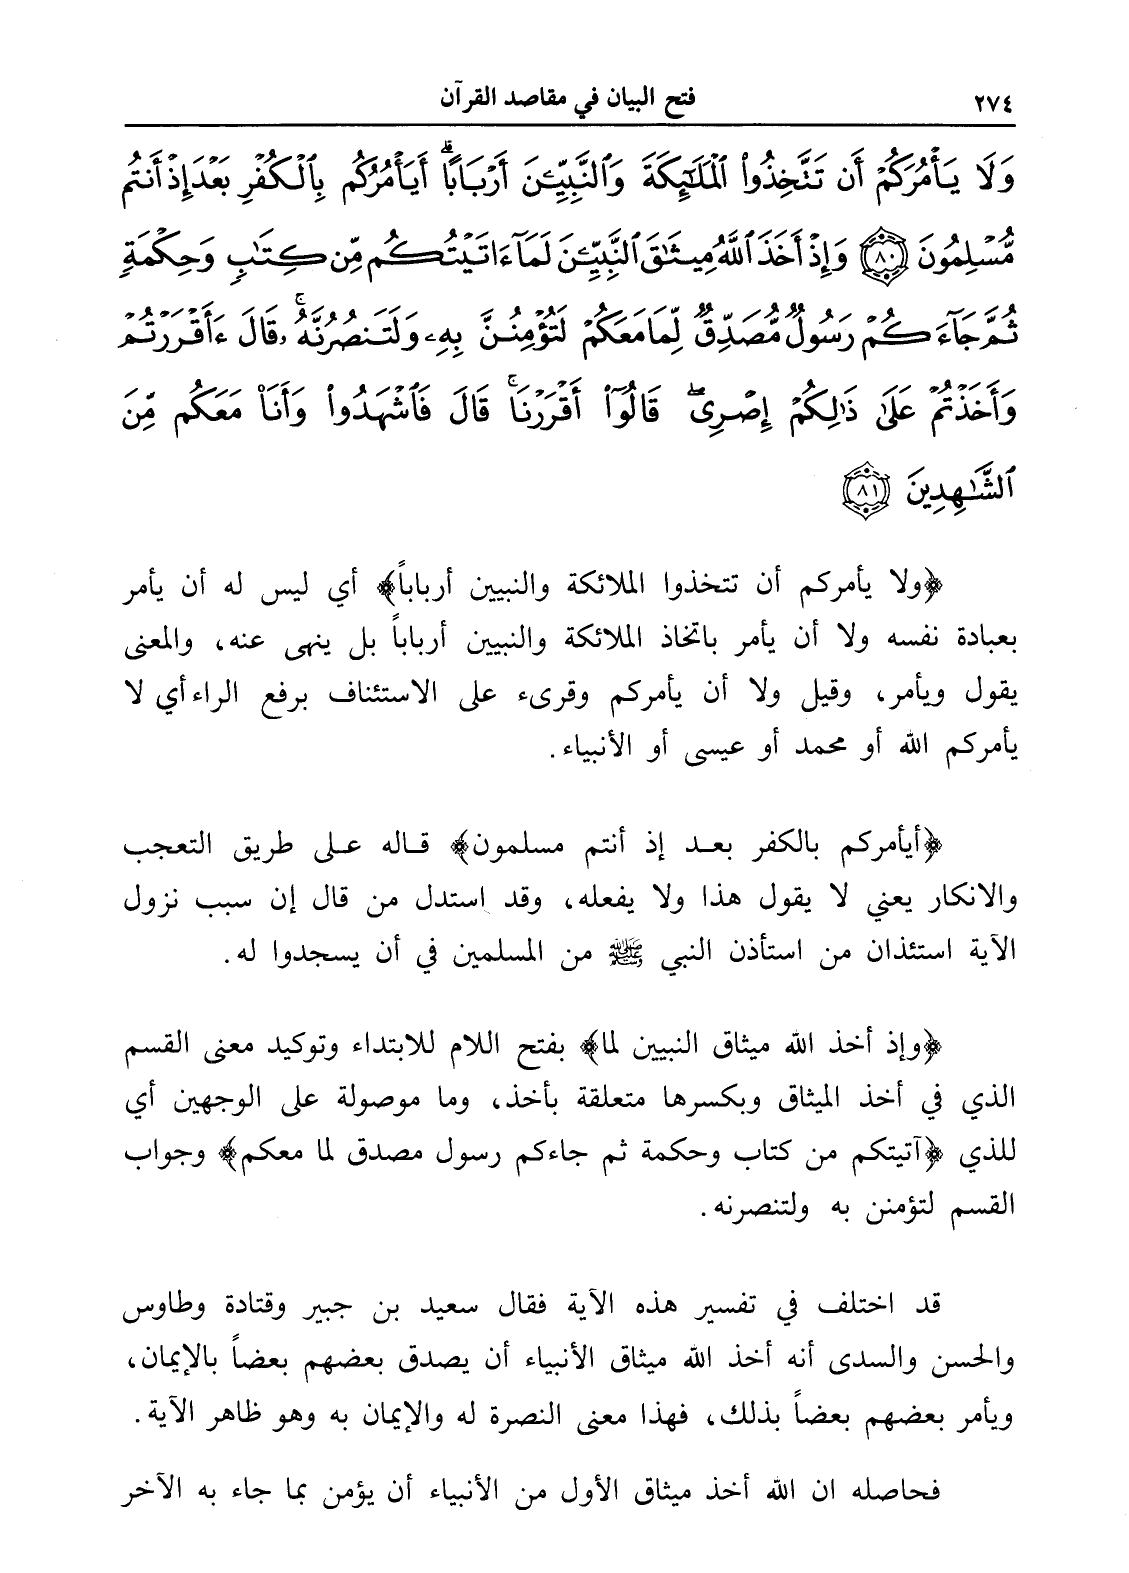 ٢٧٤
فتح البيان في مقاصد القرآن
وَلَا يَأْمُرَكُمْ أَن تَتَّخِذُوا۟ ٱلْمَلَٰٓئِكَةَ وَٱلنَّبِيِّۦنَ أَرْبَابًا ۗ أَيَأْمُرُكُم بِٱلْكُفْرِ بَعْدَ إِذْ أَنتُم
مُّسْلِمُونَ ٨٠ وَإِذْ أَخَذَ ٱللَّهُ مِيثَٰقَ ٱلنَّبِيِّۦنَ لَمَآ ءَاتَيْتُكُم مِّن كِتَٰبٍ وَحِكْمَةٍ
ثُمَّ جَآءَكُمْ رَسُولٌ مُّصَدِّقٌ لِّمَا مَعَكُمْ لَتُؤْمِنُنَّ بِهِۦ وَلَتَنصُرُنَّهُۥ ۚ قَالَ ءَأَقْرَرْتُمْ
وَأَخَذْتُمْ عَلَىٰ ذَٰلِكُمْ إِصْرِى ۖ قَالُوٓا۟ أَقْرَرْنَا ۚ قَالَ فَٱشْهَدُوا۟ وَأَنَا۠ مَعَكُم مِّنَ
ٱلشَّٰهِدِينَ ٨١
﴿ولا يأمركم أن تتخذوا الملائكة والنبيين أرباباً﴾ أي ليس له أن يأمر
بعبادة نفسه ولا أن يأمر باتخاذ الملائكة والنبيين أرباباً بل ينهى عنه، والمعنى
يقول ويأمر، وقيل ولا أن يأمركم وقرىء على الاستئناف برفع الراء أي لا
يأمركم الله أو محمد أو عيسى أو الأنبياء.
﴿أيأمركم بالكفر بعد إذ أنتم مسلمون﴾ قاله على طريق التعجب
والانكار يعني لا يقول هذا ولا يفعله، وقد استدل من قال إن سبب نزول
الآية استئذان من استأذن النبي ﷺ من المسلمين في أن يسجدوا له.
﴿وإذ أخذ الله ميثاق النبيين لما﴾ بفتح اللام للابتداء وتوكيد معنى القسم
الذي في أخذ الميثاق وبكسرها متعلقة بأخذ، وما موصولة على الوجهين أي
للذي ﴿آتيتكم من كتاب وحكمة ثم جاءكم رسول مصدق لما معكم﴾ وجواب
القسم لتؤمنن به ولتنصرنه.
قد اختلف في تفسير هذه الآية فقال سعيد بن جبير وقتادة وطاوس
والحسن والسدى أنه أخذ الله ميثاق الأنبياء أن يصدق بعضهم بعضاً بالإيمان،
ويأمر بعضهم بعضاً بذلك، فهذا معنى النصرة له والإيمان به وهو ظاهر الآية.
فحاصله ان الله أخذ ميثاق الأول من الأنبياء أن يؤمن بما جاء به الآخر